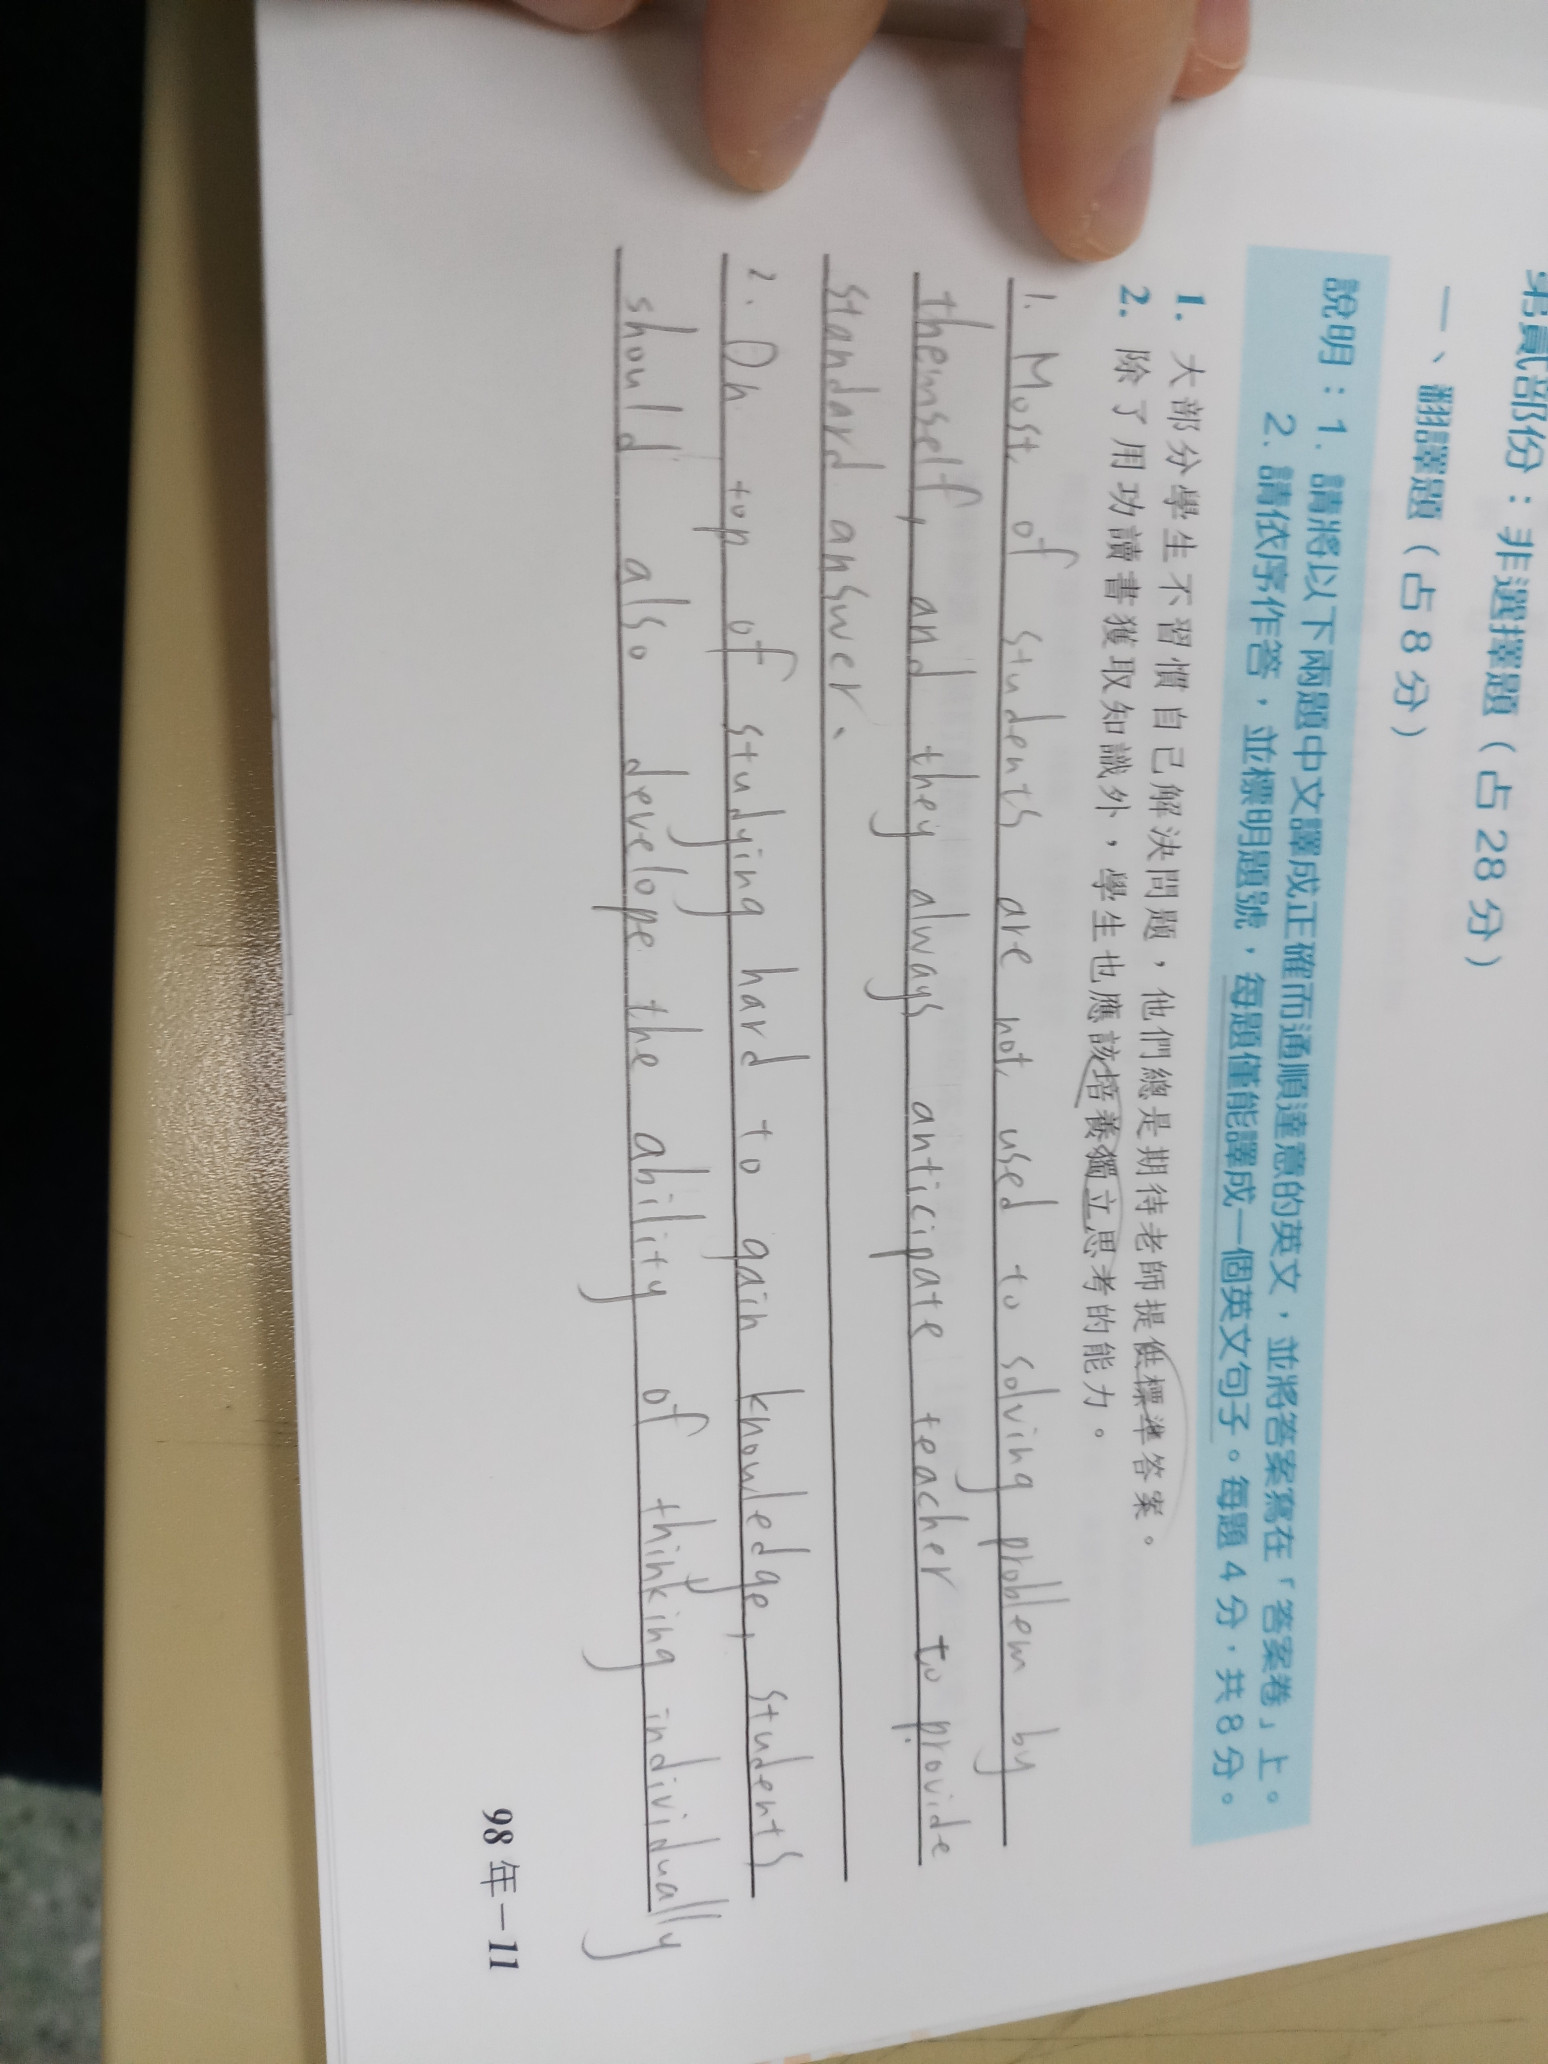 第貳部份：非選擇題（占 28 分）
一、翻譯題（占 8 分）
說明：1. 請將以下兩題中文譯成正確而通順達意的英文，並將答案寫在「答案卷」上。
2. 請依序作答，並標明題號，每題僅能譯成一個英文句子。每題 4 分，共 8 分。
1. 大部分學生不習慣自己解決問題，他們總是期待老師提供標準答案。
2. 除了用功讀書獲取知識外，學生也應該培養獨立思考的能力。
1. Most of students are not used to solving problem by
themself, and they always anticipate teacher to provide
standard answer.
2. On top of studying hard to gain knowledge, students
should also develope the ability of thinking individually
98 年－11